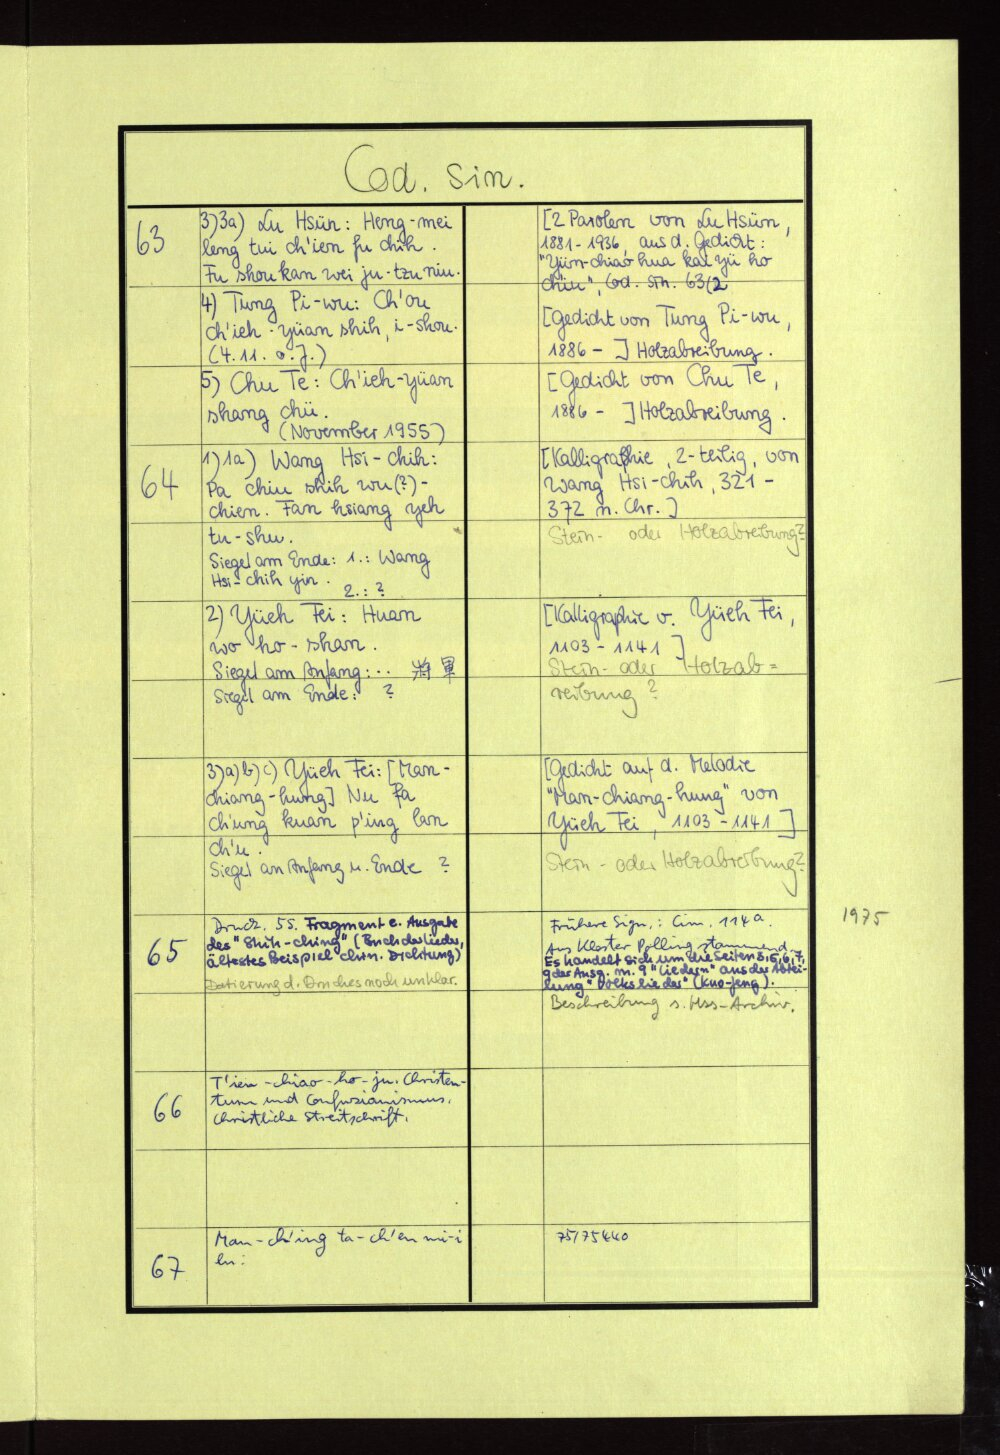 Cod. sin.
63
3)3a) Lu Hsün: Heng-mei
leng tui ch'ien fu chih.
Fu shou kan wei ju-tzu niu.
[2 Parolen von Lu Hsün,
1881-1936, aus d. Gedicht:
"Yün-chiao hua kai yü ho
chiu", Cod. sin. 63/2
4) Tung Pi-wu: Ch'ou
ch'ieh-yüan shih, i-shou.
(4.11. o.J.)
[Gedicht von Tung Pi-wu,
1886 - ] Holzabreibung.
5) Chu Te: Ch'ieh-yüan
shang chü.
(November 1955)
[Gedicht von Chu Te,
1886 - ] Holzabreibung.
64
1)1a) Wang Hsi-chih:
Pa chiu shih wu(?)-
chien. Fan hsiang yeh
tu-shu.
Siegel am Ende: 1.: Wang
Hsi-chih yin.
2.: ?
[Kalligraphie, 2-teilig, von
Wang Hsi-chih, 321-
372 n. Chr.]
Stein- oder Holzabreibung?
2) Yüeh Fei: Huan
wo ho-shan.
Siegel am Anfang: .. 將軍
Siegel am Ende: ?
[Kalligraphie v. Yüeh Fei,
1103-1141 ]
Stein- oder Holzab=
reibung?
3)a)b)c) Yüeh Fei: [Man-
chiang-hung] Nu fa
ch'ung kuan p'ing lan
ch'u.
Siegel an Anfang u. Ende ?
[Gedicht auf d. Melodie
"Man-chiang-hung" von
Yüeh Fei, 1103-1141 ]
Stein- oder Holzabreibung?
65
Druck. 5S. Fragment e. Ausgabe
des "Shih-ching" (Buch der Lieder,
ältestes Beispiel chin. Dichtung)
Datierung d. Druckes noch unklar.
Frühere Sign.: Cim. 114a
Aus Kloster Polling stammend.
Es handelt sich um die Seiten 3,5,6,7,
9 der Ausg. m. 9 "Liedern" aus der Abtei-
lung "Volkslieder" (Kuo-feng).
Beschreibung s. Hss-Archiv.
1975
66
T'ien-chiao-ho-ju. Christen-
tum und Confuzianismus.
Christliche Streitschrift.
67
Man-ch'ing ta-ch'en mi-i
lu:
75/75440